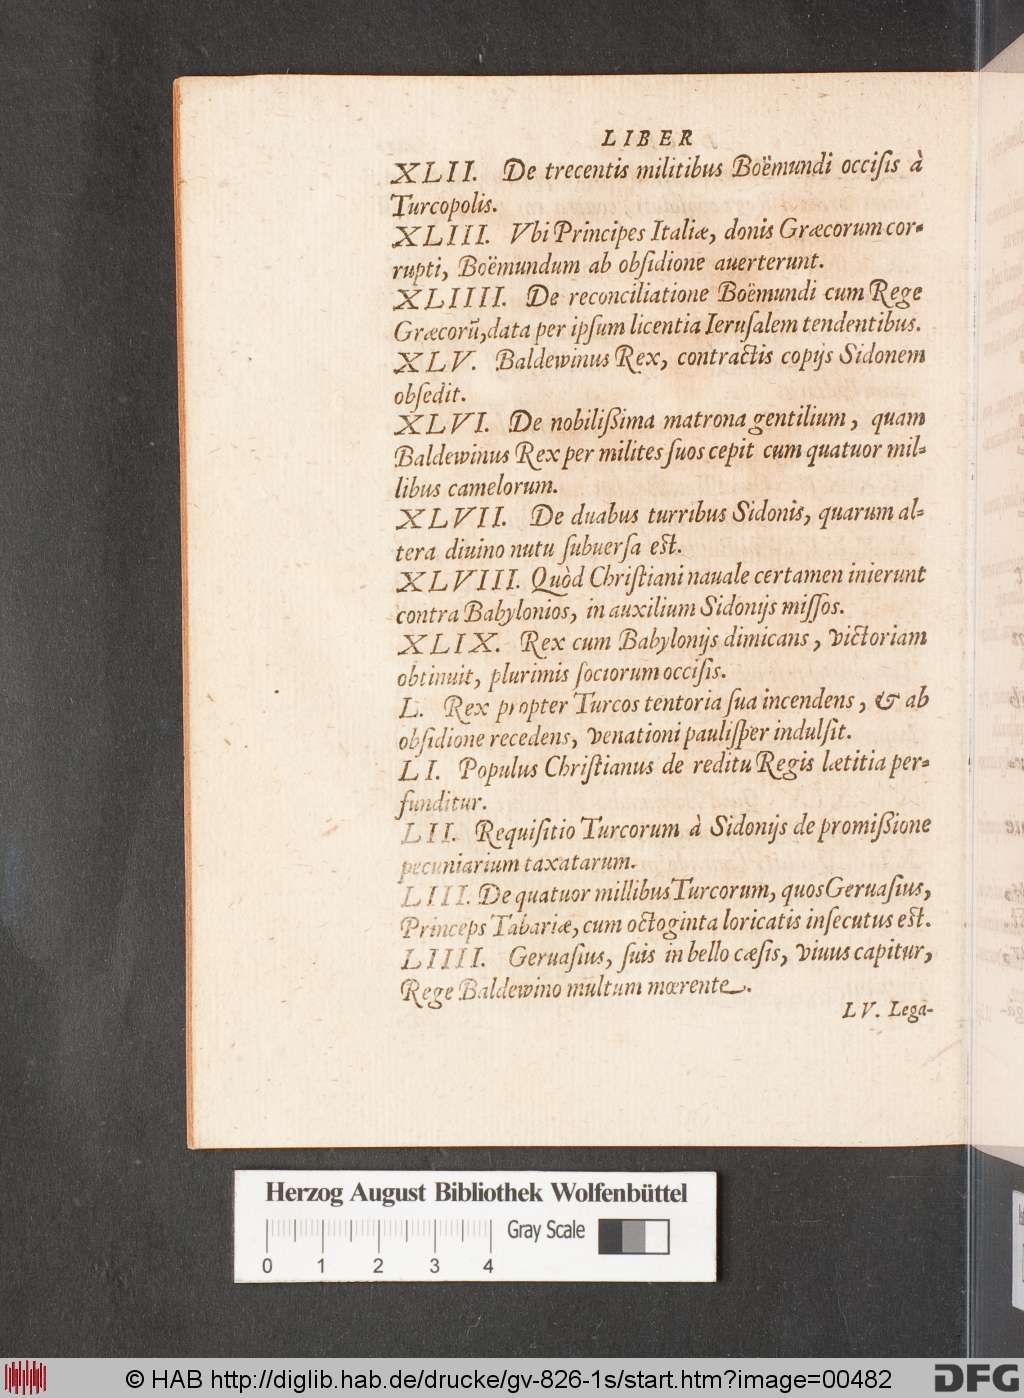 LIBER
XLII. De trecentis militibus Boëmundi occisis à
Turcopolis.
XLIII. Vbi Principes Italiæ, donis Græcorum cor-
rupti, Boëmundum ab obsidione auerterunt.
XLIIII. De reconciliatione Boëmundi cum Rege
Græcorũ, data per ipsum licentia Ierusalem tendentibus.
XLV. Baldewinus Rex, contractis copijs Sidonem
obsedit.
XLVI. De nobilißima matrona gentilium, quam
Baldewinus Rex per milites suos cepit cum quatuor mil-
libus camelorum.
XLVII. De duabus turribus Sidonis, quarum al-
tera diuino nutu subuersa est.
XLVIII. Quòd Christiani nauale certamen inierunt
contra Babylonios, in auxilium Sidonijs missos.
XLIX. Rex cum Babylonijs dimicans, victoriam
obtinuit, plurimis sociorum occisis.
L. Rex propter Turcos tentoria sua incendens, & ab
obsidione recedens, venationi paulisper indulsit.
LI. Populus Christianus de reditu Regis lætitia per-
funditur.
LII. Requisitio Turcorum à Sidonijs de promißione
pecuniarium taxatarum.
LIII. De quatuor millibus Turcorum, quos Geruasius,
Princeps Tabariæ, cum octoginta loricatis insecutus est.
LIIII. Geruasius, suis in bello cæsis, viuus capitur,
Rege Baldewino multum mœrente.
LV. Lega-
Herzog August Bibliothek Wolfenbüttel
Gray Scale
0 1 2 3 4
© HAB http://diglib.hab.de/drucke/gv-826-1s/start.htm?image=00482
DFG